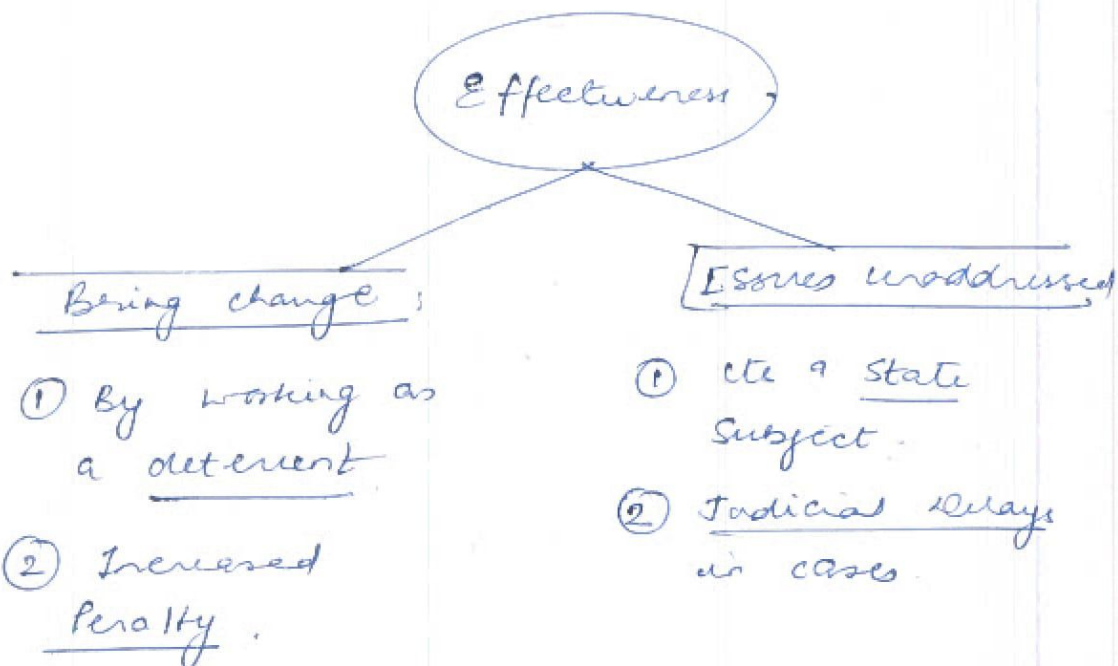 Effectiveness
Bring change:
① By working as
a deterrent
② Increased
Penalty.
Issues unaddressed
① a State
Subject.
② Judicial Delays
in cases.